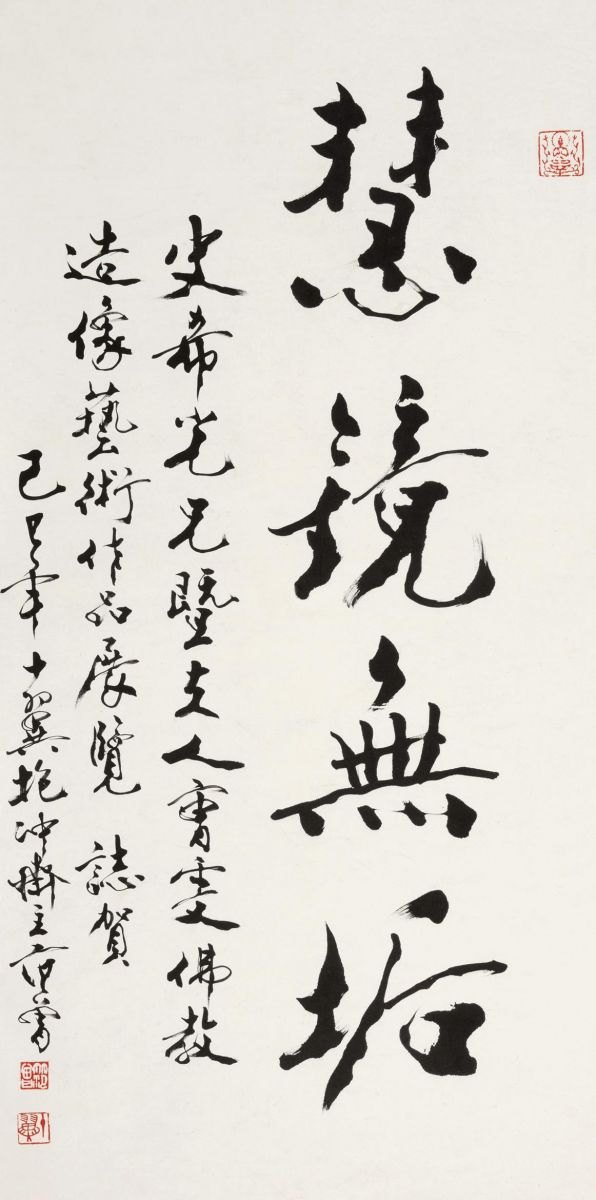 慧鏡無垢
史希光兄暨夫人雯佛教
造像藝術作品展覽 誌賀
己巳年十翼抱冲齋主范曾